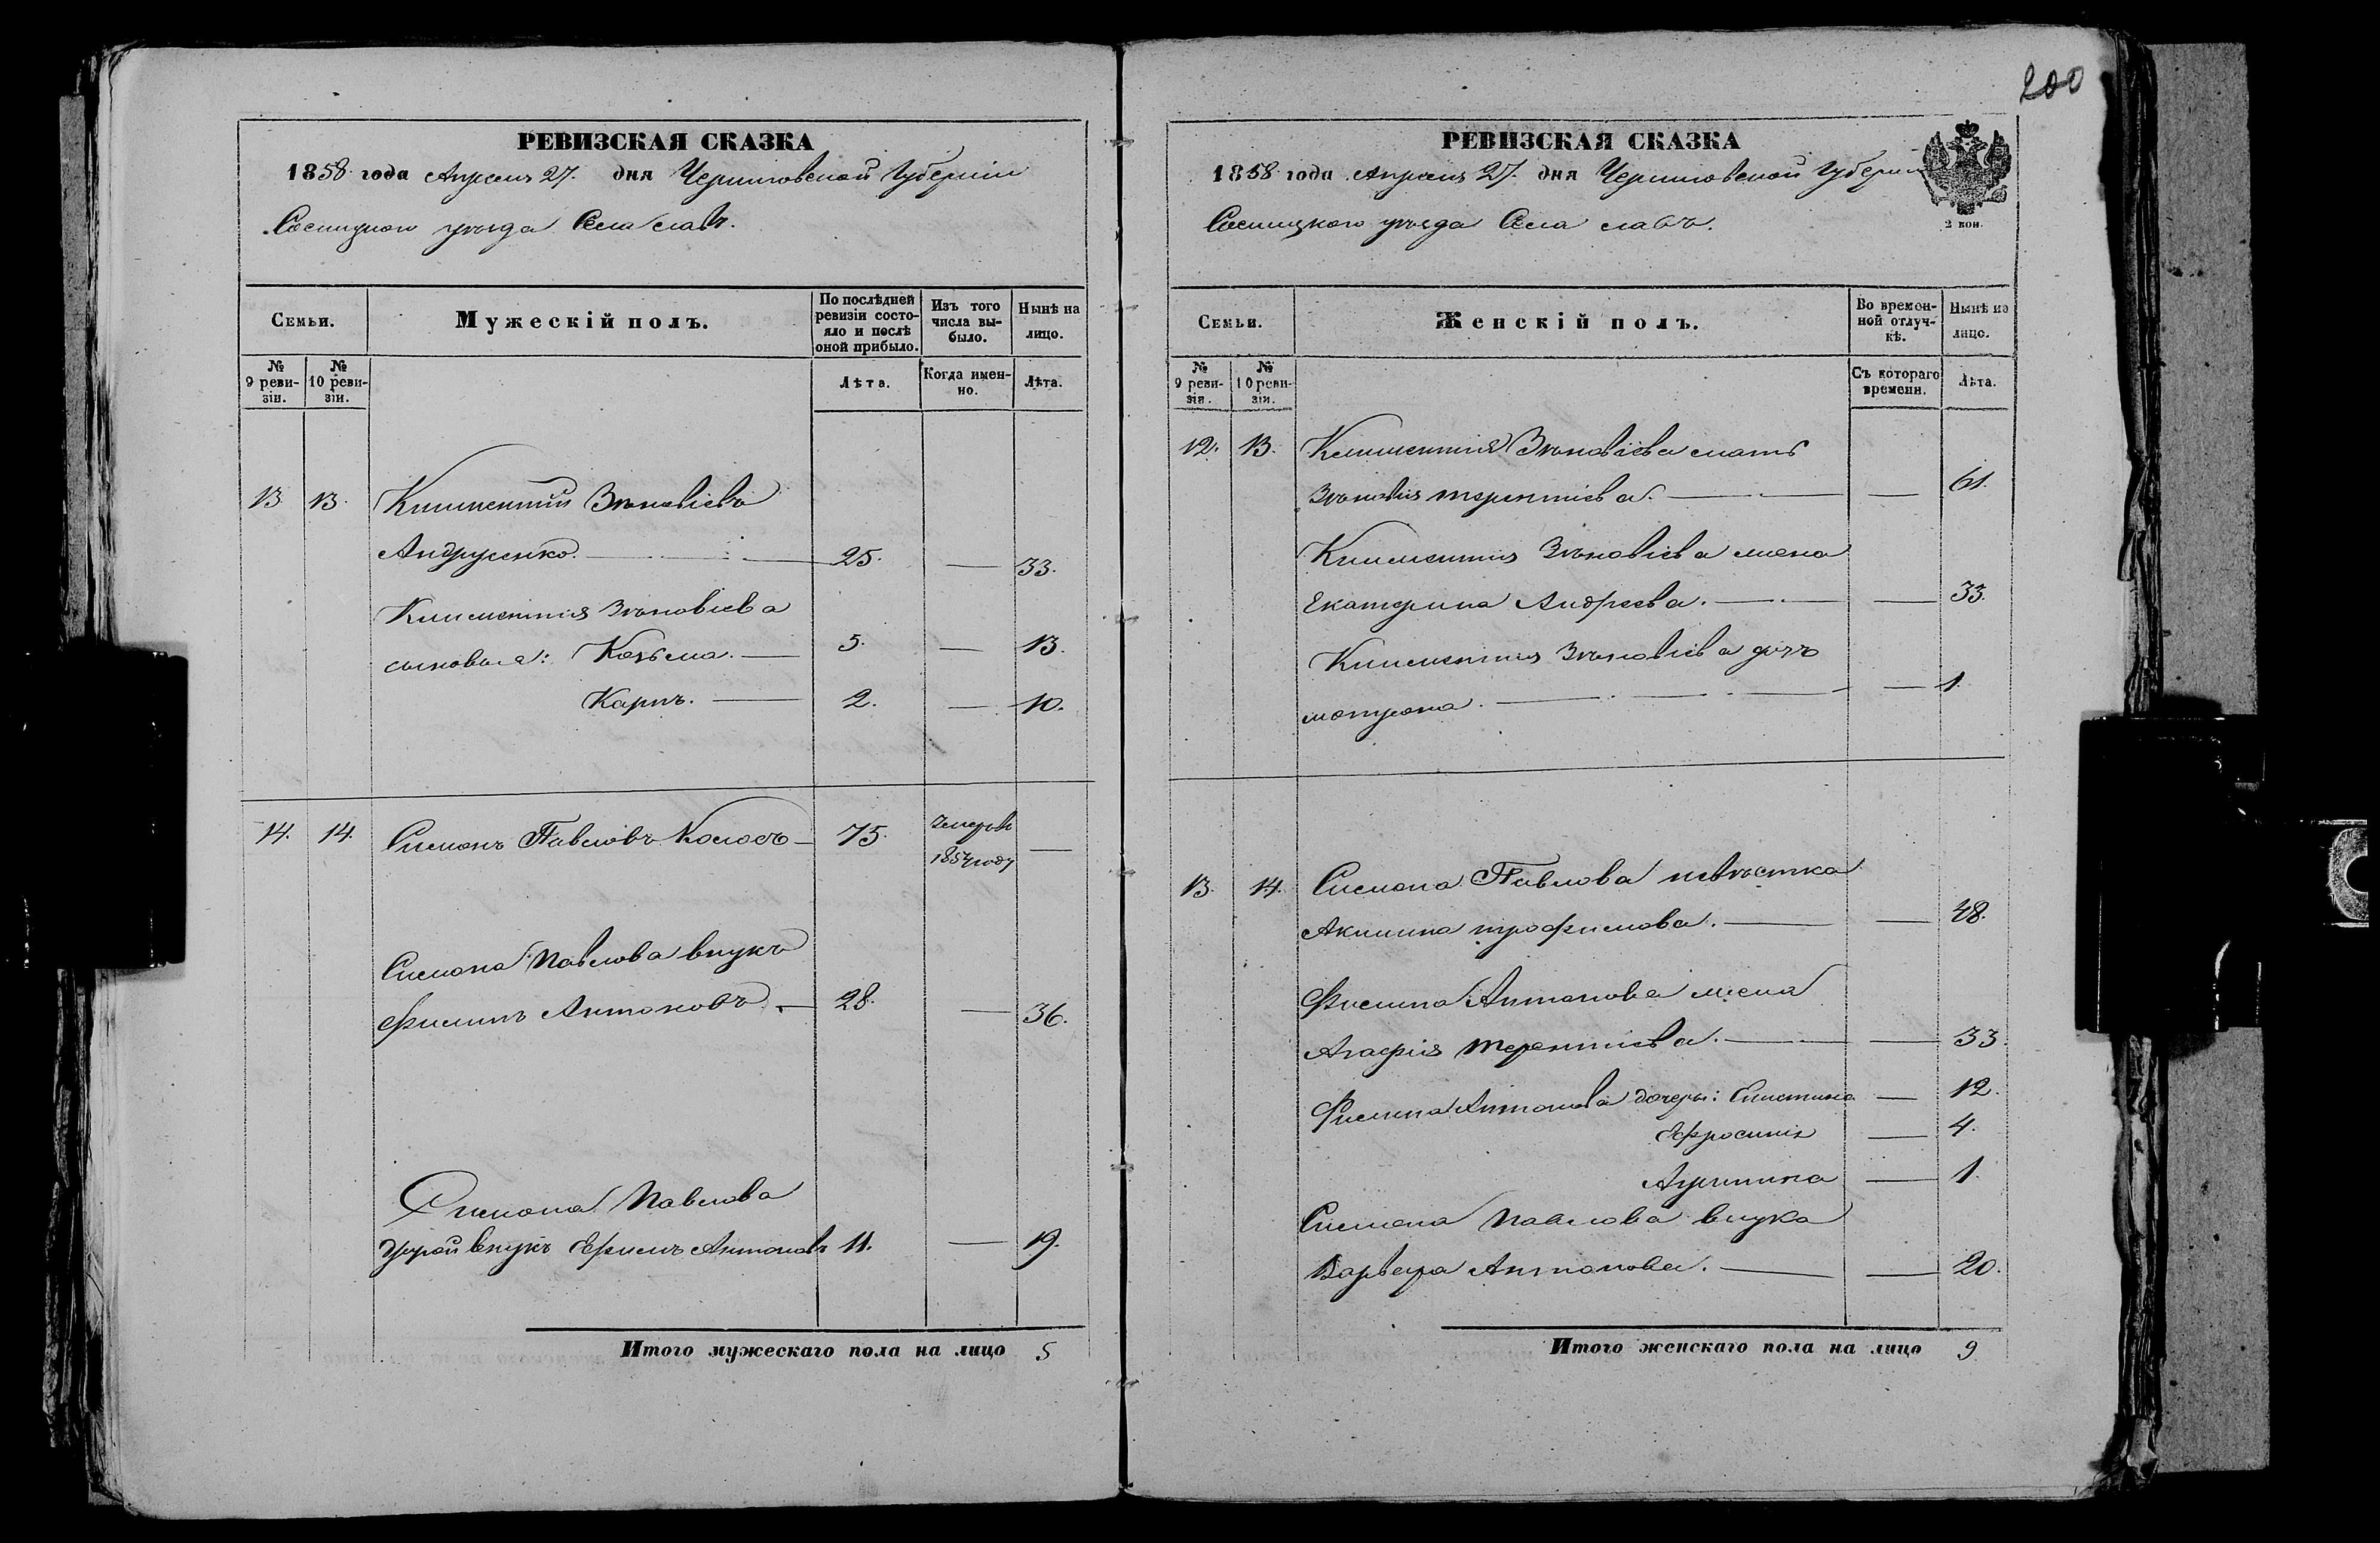 РЕВИЗСКАЯ СКАЗКА
1858 года Апреля 27. дня Черниговской Губернiи
Сосницкого уѣзда Села
Семьи.
№ 9 ревизiи.
№ 10 ревизiи.
Мужескiй полъ.
По послѣдней ревизiи состояло и послѣ оной прибыло.
Лѣта.
Изъ того числа выбыло.
Когда именно.
Нынѣ на лицо.
Лѣта.
13 13. Климентiй Зѣновiевъ
Андрусенко. 25. — 33.
Климентiя Зѣновiева
сыновья: Козьма. — 5. — 13.
Карпъ. — 2. — 10.
14. 14. Симонъ Павловъ Колосъ — 75. умеръ въ —
году
Симона Павлова внукъ
Филипъ Антоновъ. — 28. — 36.
Симона Павлова
другой внукъ Ефимъ Антоновъ 11. — 19.
Итого мужескаго пола на лицо 5
200
РЕВИЗСКАЯ СКАЗКА
1858 года Апреля 27. дня Черниговской Губернiи
Сосницкого уѣзда Села
2 коп.
Семьи.
№ 9 ревизiи.
№ 10 ревизiи.
Женскiй полъ.
Во временной отлучкѣ.
Съ котораго времени.
Нынѣ на лицо.
Лѣта.
12. 13. Климентiя Зѣновiева мать
Терентiева. — — 61.
Климентiя Зѣновiева жена
Екатерина Андреева. — — 33.
Климентiя Зѣновiева дочь
Мотрона. — — 1.
13. 14. Симона Павлова невѣстка
Акилина Трофимова. — — 48.
Филипа Антонова жена
Агафiя Терентiева. — — 33.
Филипа Антонова дочеры: — 12.
Ефросинiя — 4.
— 1.
Симона Павлова внука
Варвара Антонова. — — 20.
Итого женскаго пола на лицо 9